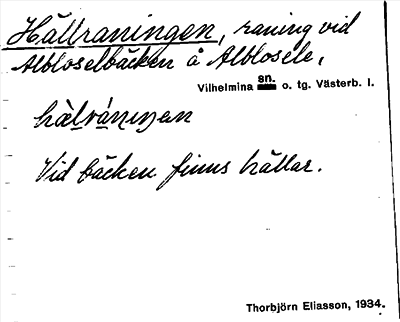 Hällraningen, raning vid
Albloselbäcken å Alblosele,
Vilhelmina sn. o. tg. Västerb. l.
hä̀lránıŋen
Vid bäcken finns hällar.
Thorbjörn Eliasson, 1934.